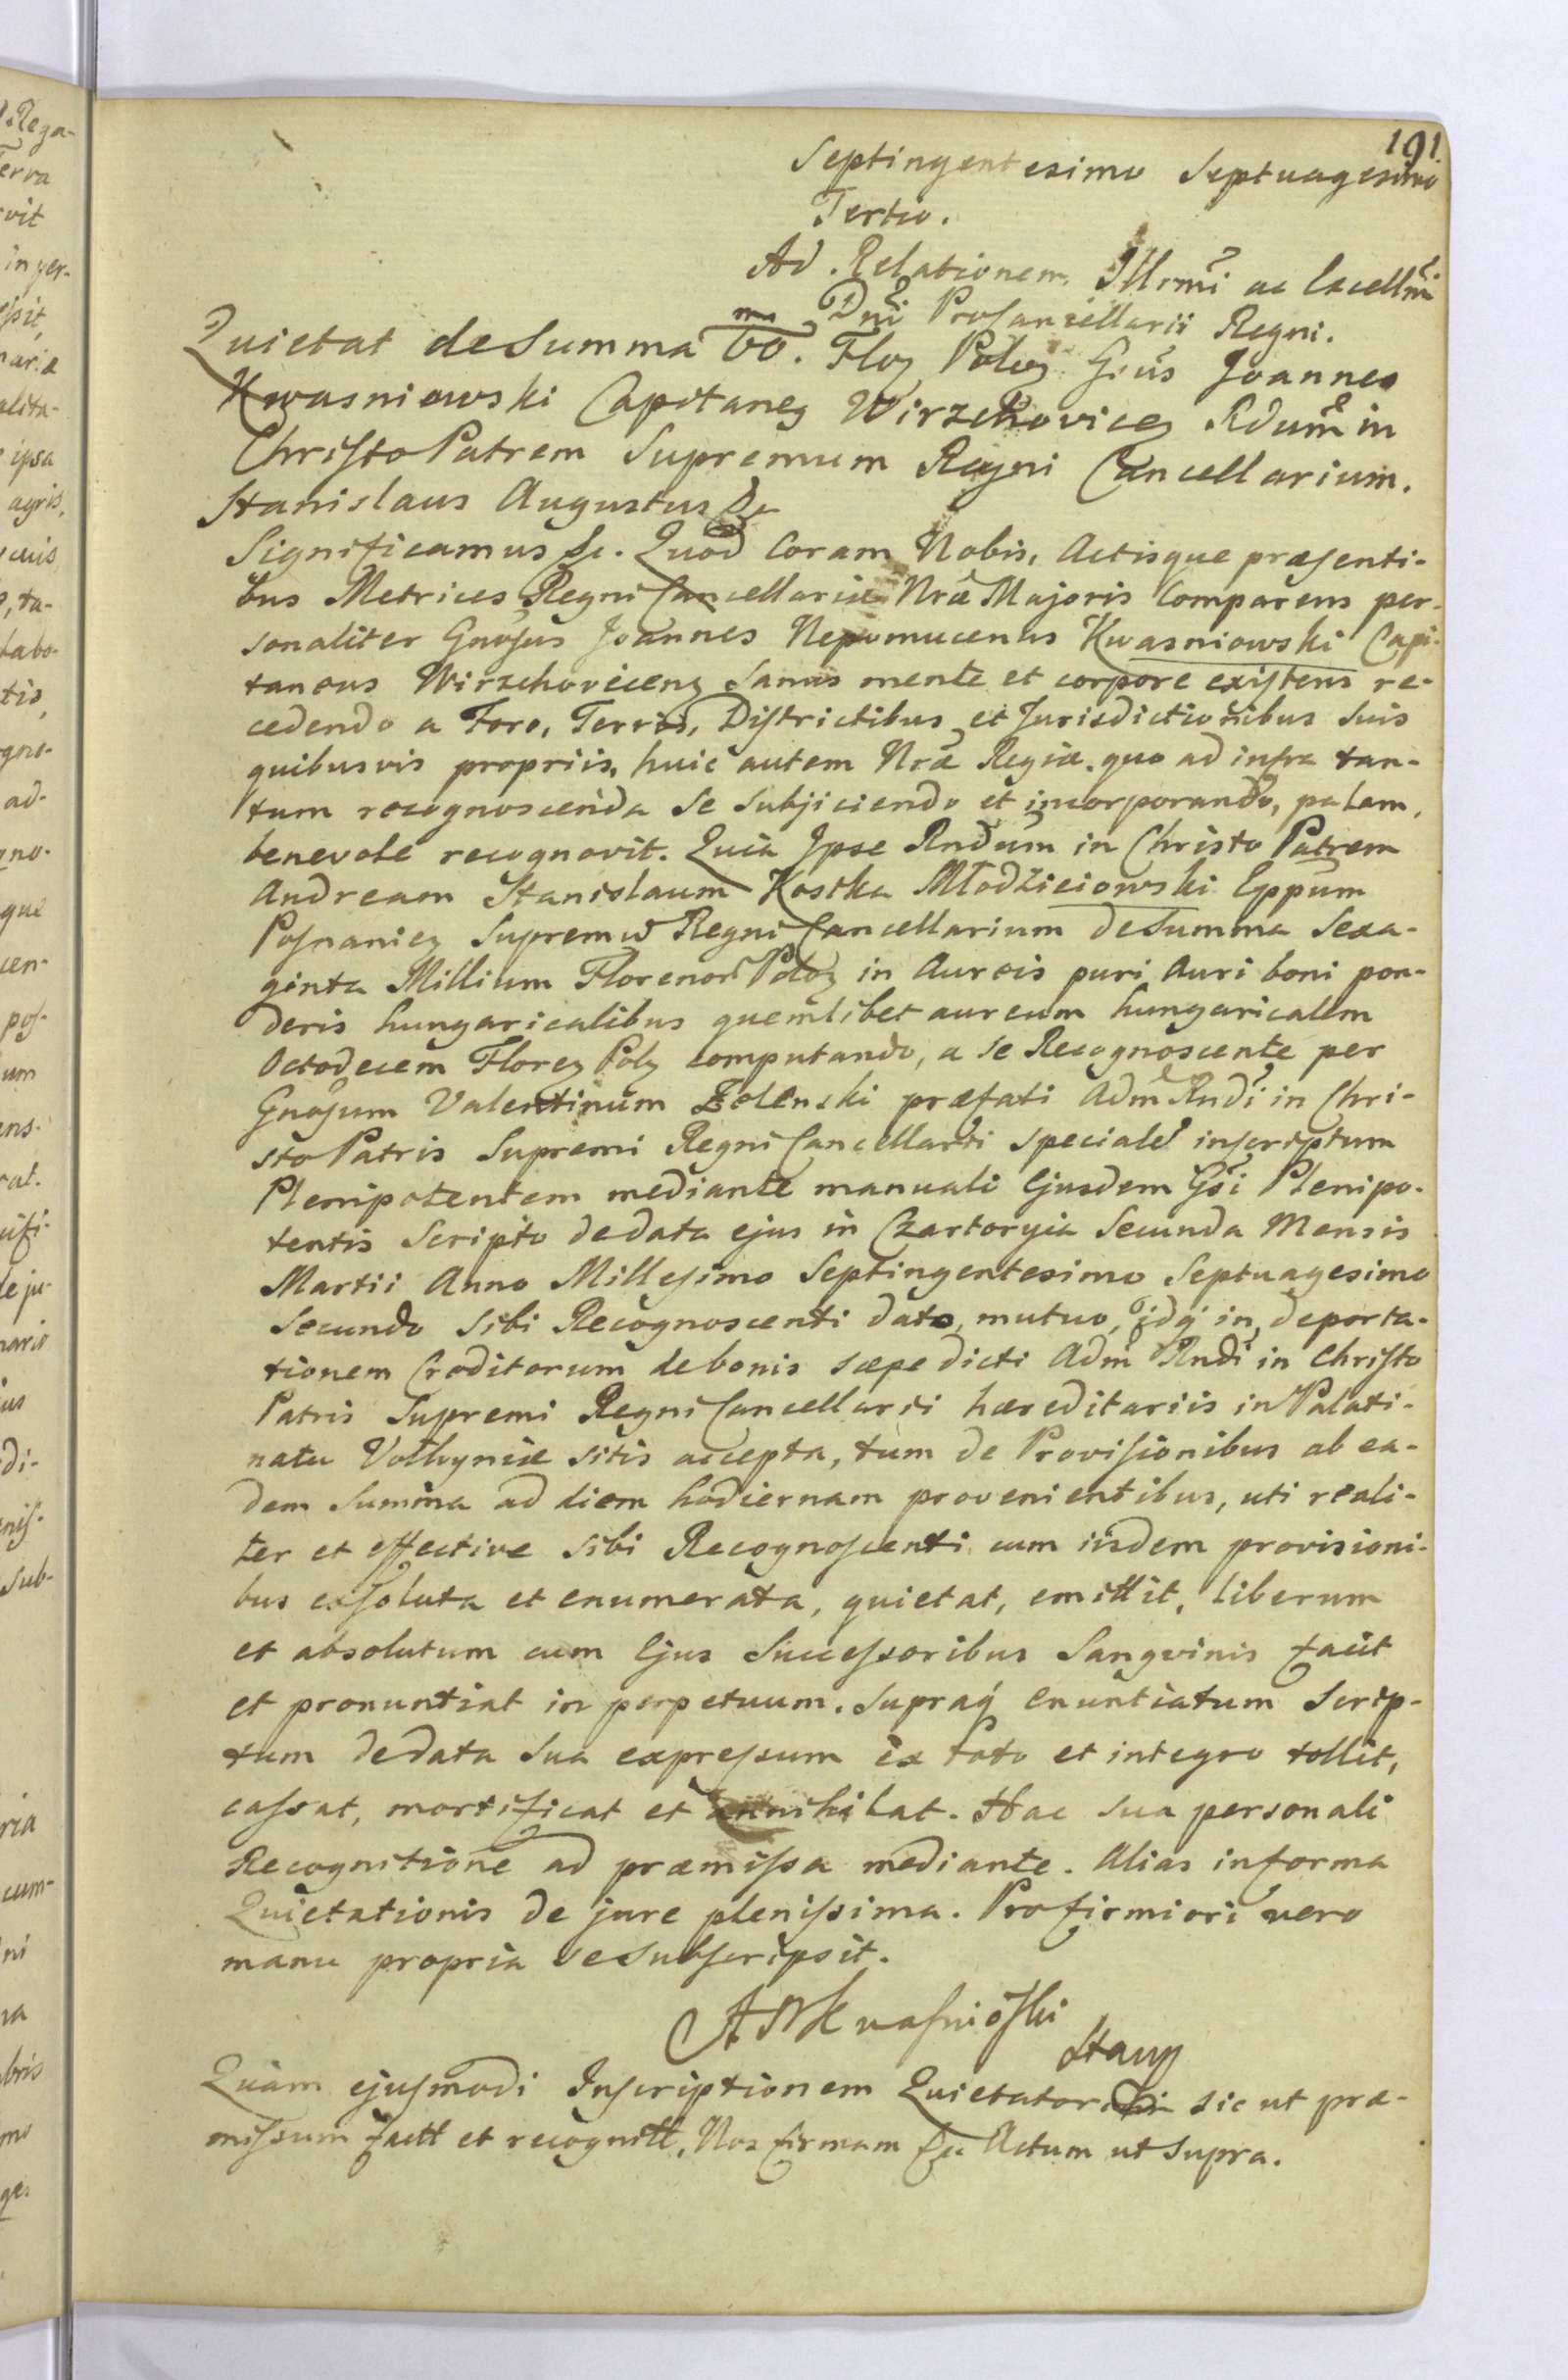 191.
Septingentesimo Septuagesimo
Tertio.
Ad Relationem Illrmi ac Excellmi
Dni ProCancellarii Regni.
Quietat de Summa 60. ma Flog Polog Gsus Joannes
Kwasniowski Capitaneg Wirzchoviceg Rdum in
Christo Patrem Supremum Regni Cancellarium.
Stanislaus Augustus &c
Significamus &c. Quod Coram Nobis, Actisque præsenti-
bus Metrices Regni Cancellariæ Nræ Majoris Comparens per-
sonaliter Gnosus Joannes Nepomucenus Kwasniowski Capi-
taneus Wirzchoviceng Sanus mente et corpore existens re-
cedendo a Foro, Terris, Districtibus et Jurisdictionibus suis
quibusvis propriis, huic autem Nræ Regiæ quo ad infra tan-
tum recognoscenda se subjiciendo et incorporando, palam,
benevole recognovit. Quia Ipse Rndum in Christo Patrem
Andream Stanislaum Kostka Młodzieiowski Eppum
Posnanieg Supremu Regni Cancellarium de Summa Sexa-
ginta Millium Florenor Polog in Aureis puri Auri boni pon-
deris hungaricalibus quemlibet aureum hungaricalem
Octodecem Floreg Polg computando, a se Recognoscente per
Gnosum Valentinum Zolenski præfati Adm Rndi in Chri-
sto Patris Supremi Regni Cancellarii speciale inscriptum
Plenipotentem mediante manuali Ejusdem Gsi Plenipo-
tentis Scripto de data ejus in Czartoryia Secunda Mensis
Martii Anno Millesimo Septingentesimo Septuagesimo
Secundo sibi Recognoscenti dato, mutuo, idq in deporta-
tionem Creditorum de bonis sæpe dicti Adm Rndi in Christo
Patris Supremi Regni Cancellarii hæreditariis in Palati-
natu Volhyniæ sitis accepta, tum de Provisionibus ab ea-
dem Summa ad diem hodiernam provenientibus, uti reali-
ter et effective sibi Recognoscenti cum iisdem provisioni-
bus exsoluta et enumerata, quietat, emittit, liberum
et absolutum cum Ejus Successoribus Sangvinis facit
et pronuntiat in perpetuum. Supraq enuntiatum Scrip-
tum de data sua expressum ex toto et integro tollit,
cassat, mortificat et annihilat. Hac sua personali
Recognitione ad præmissa mediante. Alias in forma
Quietationis de jure plenissima. Pro firmiori vero
manu propria se subscripsit.
Kwasnioski
Quam ejusmodi Inscriptionem Quietatori sic ut præ-
missum factt et recognitt, Nos firmam &c Actum ut supra.